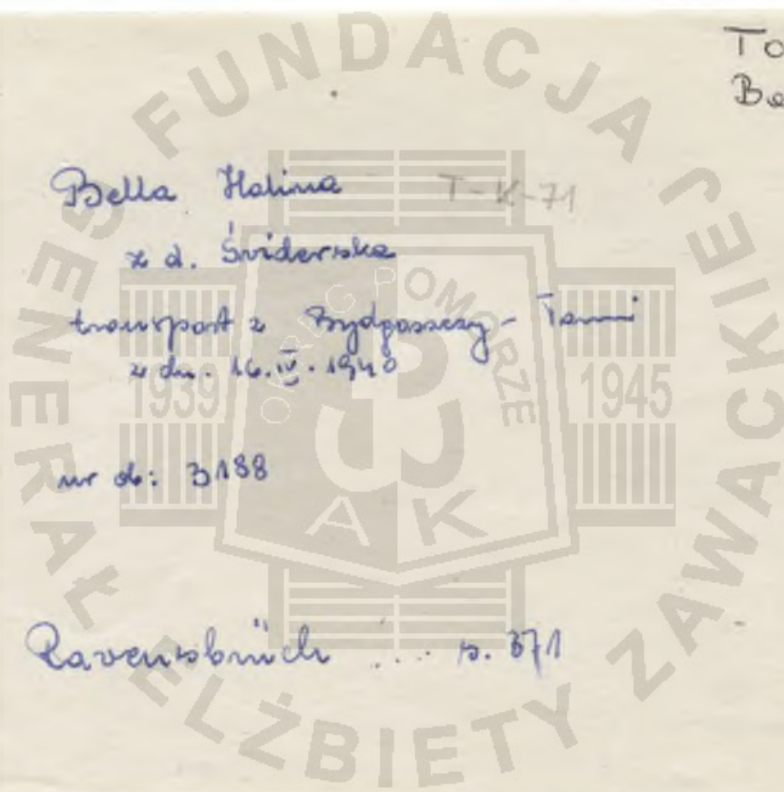 To
Be
Bella Halina T-K-71
z d. Świderska
transport z Bydgoszczy -
z dn. 16.IV.1940
nr ob: 3188
Ravensbrück ... s. 371
FUNDACJA GENERAŁ ELŻBIETY ZAWACKIEJ
OKRĘG POMORZE
1939 1945
AK